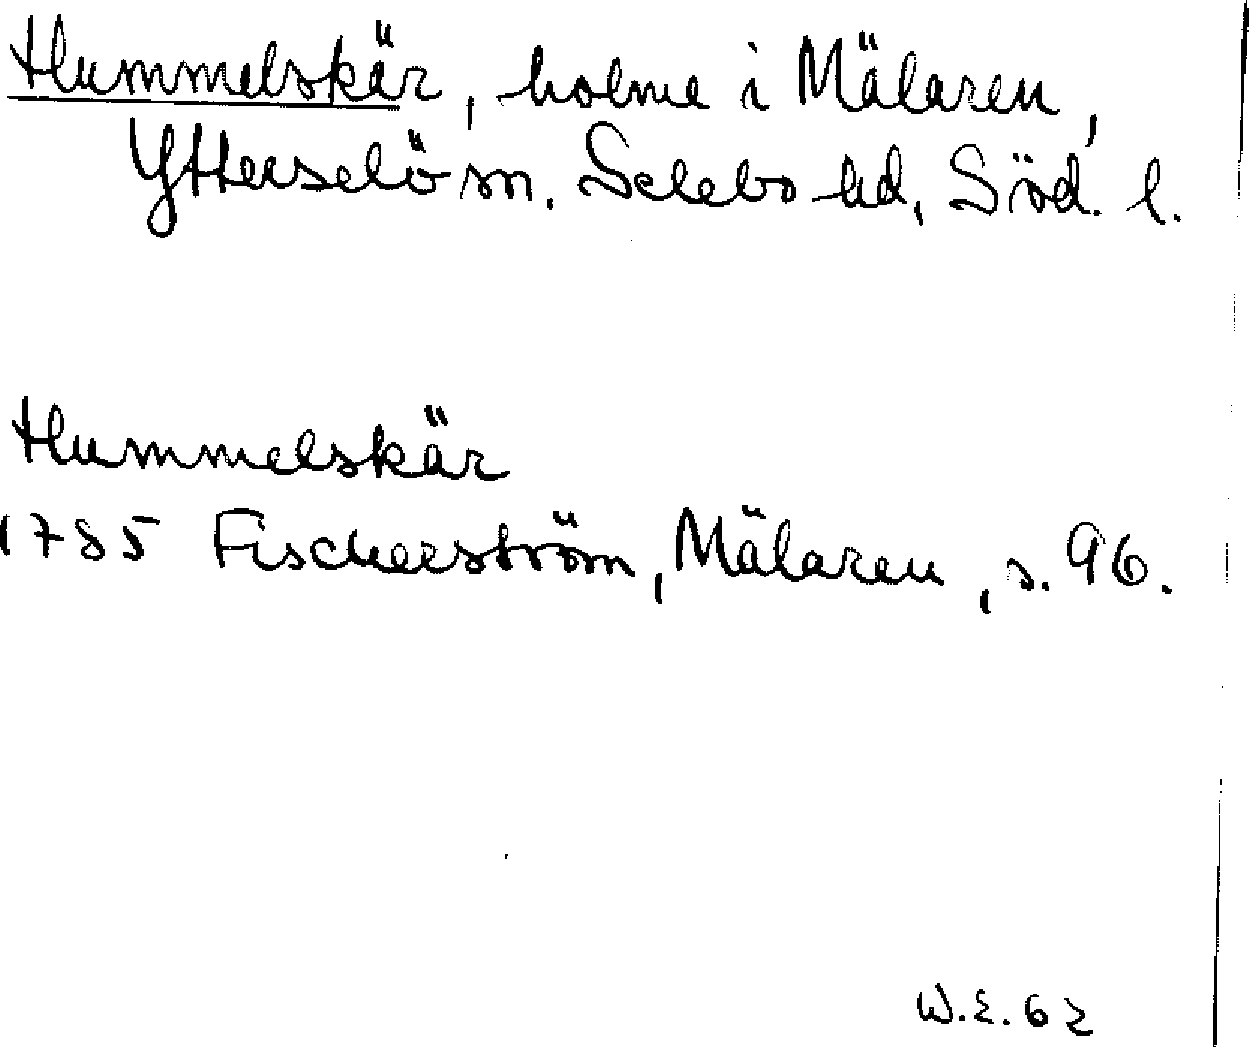 Hummelskär, holme i Mälaren,
Ytterselö sn. Selebo hd, Söd. l.
Hummelskär
1785 Fischerström, Mälaren, s. 96.
W.E. 62